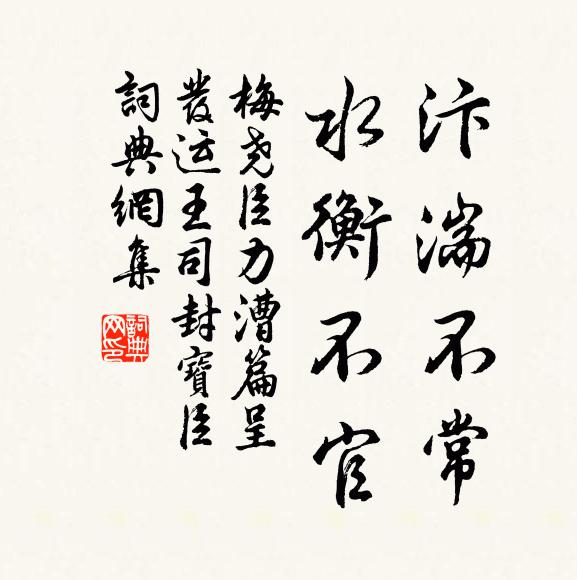 汴湍不常
水衡不官
梅堯臣力漕篇呈
發运王司封寶臣
詞典網集
詞典网印